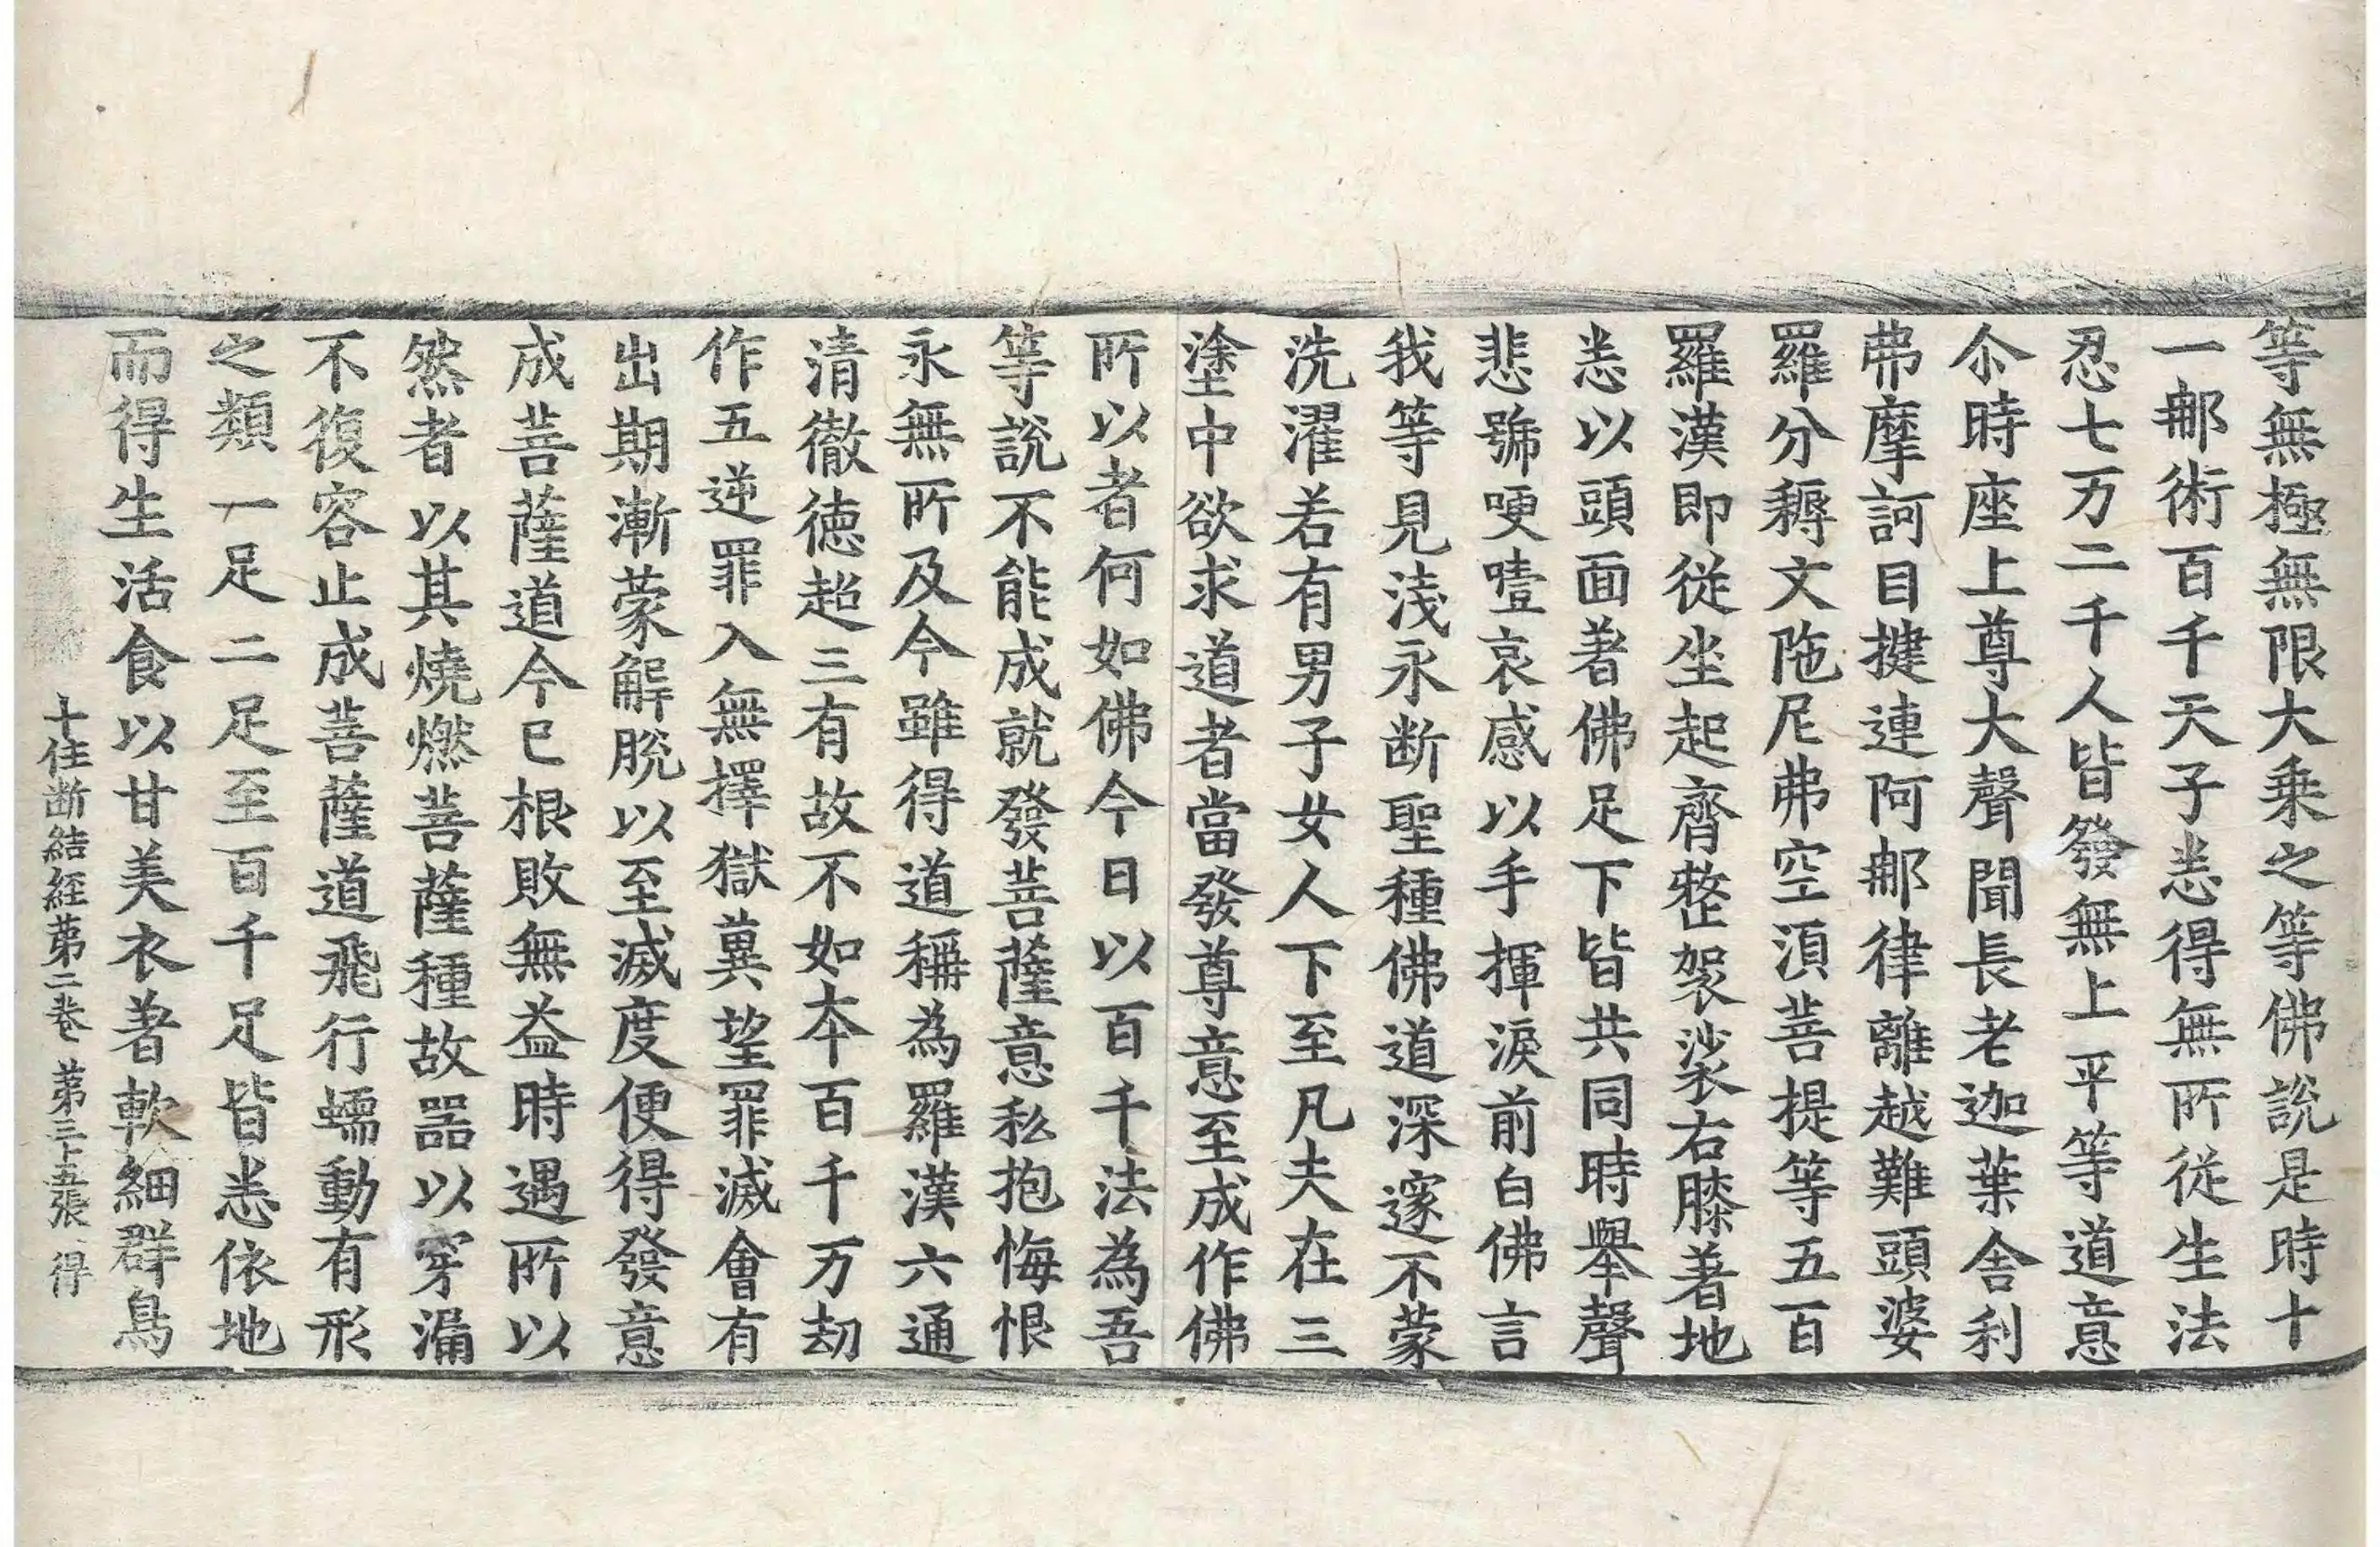 等無極無限大乗之等佛說是時十
一郍術百千天子悉得無所從生法
忍七万二千人皆發無上平等道意
尒時座上尊大聲聞長老迦葉舎利
弗摩訶目揵連阿郍律離越難頭婆
羅分耨文陁尼弗空湏菩提等五百
羅漢即從坐起齊整袈裟右膝著地
悉以頭面著佛足下皆共同時舉聲
悲號哽噎哀感以手揮淚前白佛言
我等見淺永断聖種佛道深邃不蒙
洗濯若有男子女人下至凡夫在三
塗中欲求道者當發尊意至成作佛
所以者何如佛今日以百千法為吾
等說不能成就發菩薩意私抱悔恨
永無所及今雖得道稱為羅漢六通
清徹徳超三有故不如本百千万劫
作五逆罪入無擇獄冀望罪滅會有
出期漸蒙解脫以至滅度便得發意
成菩薩道今已根敗無益時遇所以
然者以其燒燃菩薩種故器以穿漏
不復容止成菩薩道飛行蠕動有形
之類一足二足至百千足皆悉依地
而得生活食以甘美衣著軟細群鳥
十住断結經苐二卷 苐三十五張 得